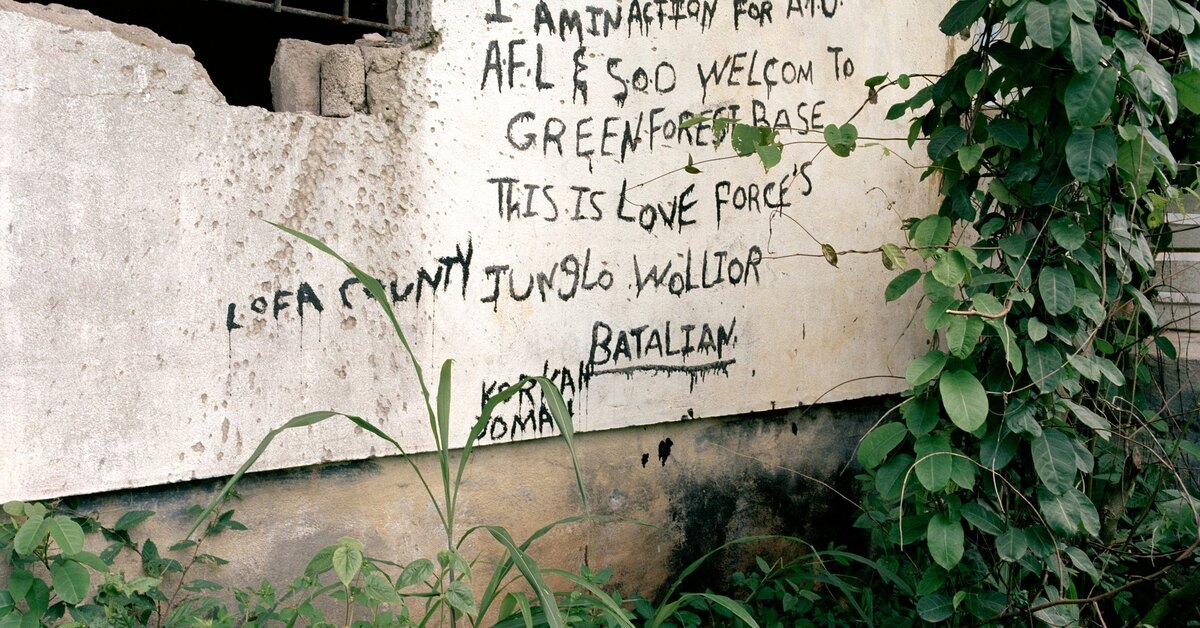 I AM IN ACTION FOR A.T.U.
A.F.L & S.O.D WELCOM TO
GREEN-FOREST BASE
THIS IS LOVE FORCE'S
LOFA COUNTY JUNGLO WOLLIOR
BATALIAN.
KORKAH